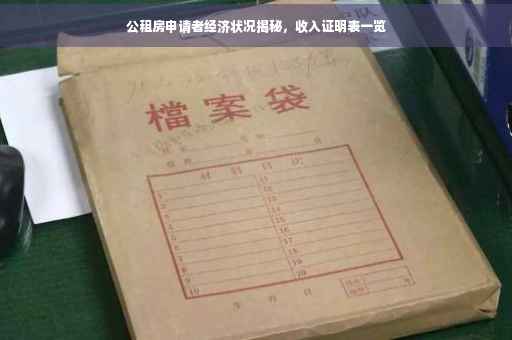 公租房申请者经济状况揭秘，收入证明表一览
檔案袋
材料目次
1 11
2 12
3 13
4 14
5 15
6 16
7 17
8 18
9 19
10 20
年 月 日